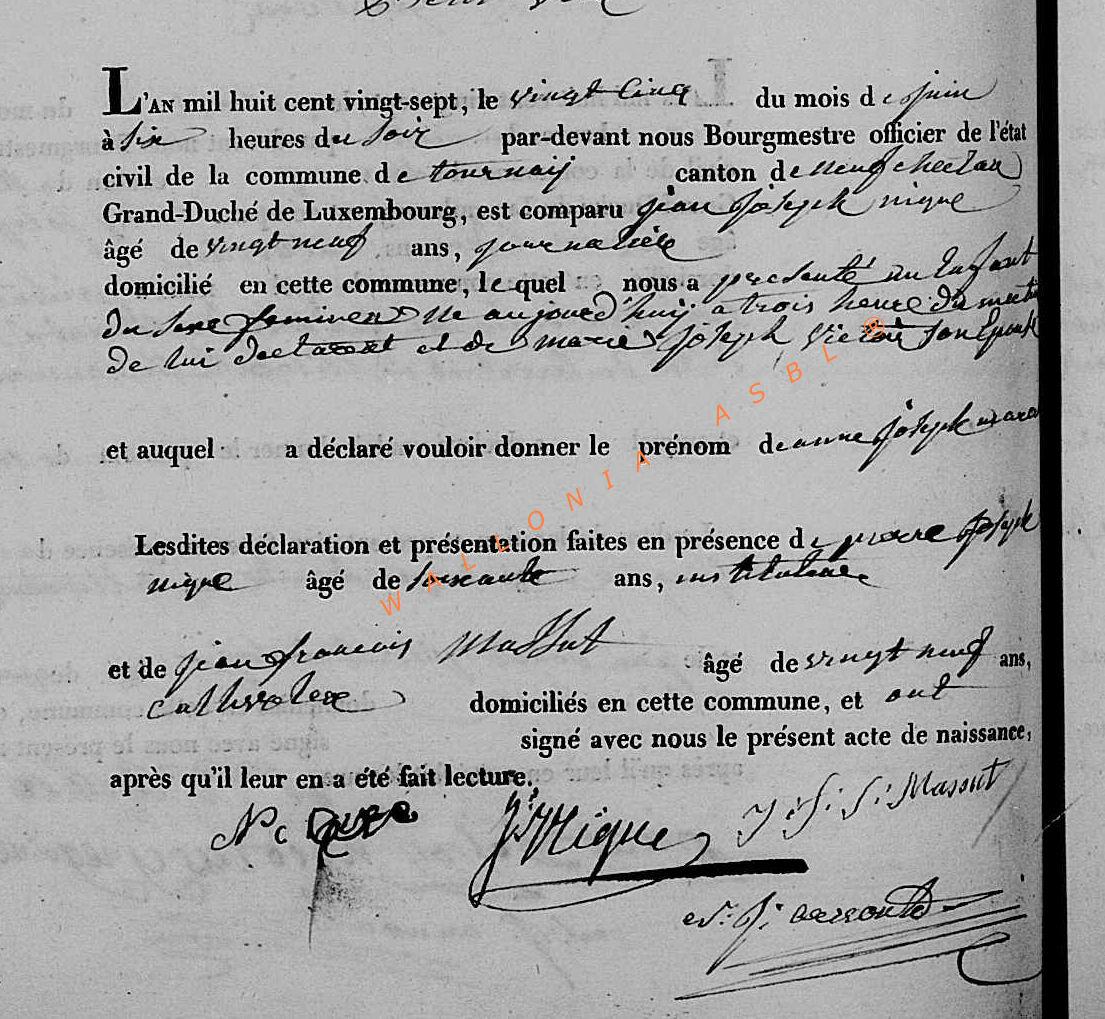 L'AN mil huit cent vingt-sept, le vingt Cinq du mois de juin
à Six heures du Soir par-devant nous Bourgmestre officier de l'état
civil de la commune de tournay canton de neufchateau
Grand-Duché de Luxembourg, est comparu jean joseph nique
âgé de vingt neuf ans, journaliere
domicilié en cette commune, lequel nous a presenté un Enfant
du Sexe feminen Ne aujourd'huy a trois heure du matin
de lui declarant et de marie joseph Son Epouse
et auquel a déclaré vouloir donner le prénom de anne joseph
Lesdites déclaration et présentation faites en présence de pierre joseph
nique âgé de soixante ans, institutaire
et de jean francois Massut âgé de vingt neuf ans,
cultivateur domiciliés en cette commune, et ont
signé avec nous le présent acte de naissance,
après qu'il leur en a été fait lecture.
Nique J: f: Massut
WALLONIA ASBL ®